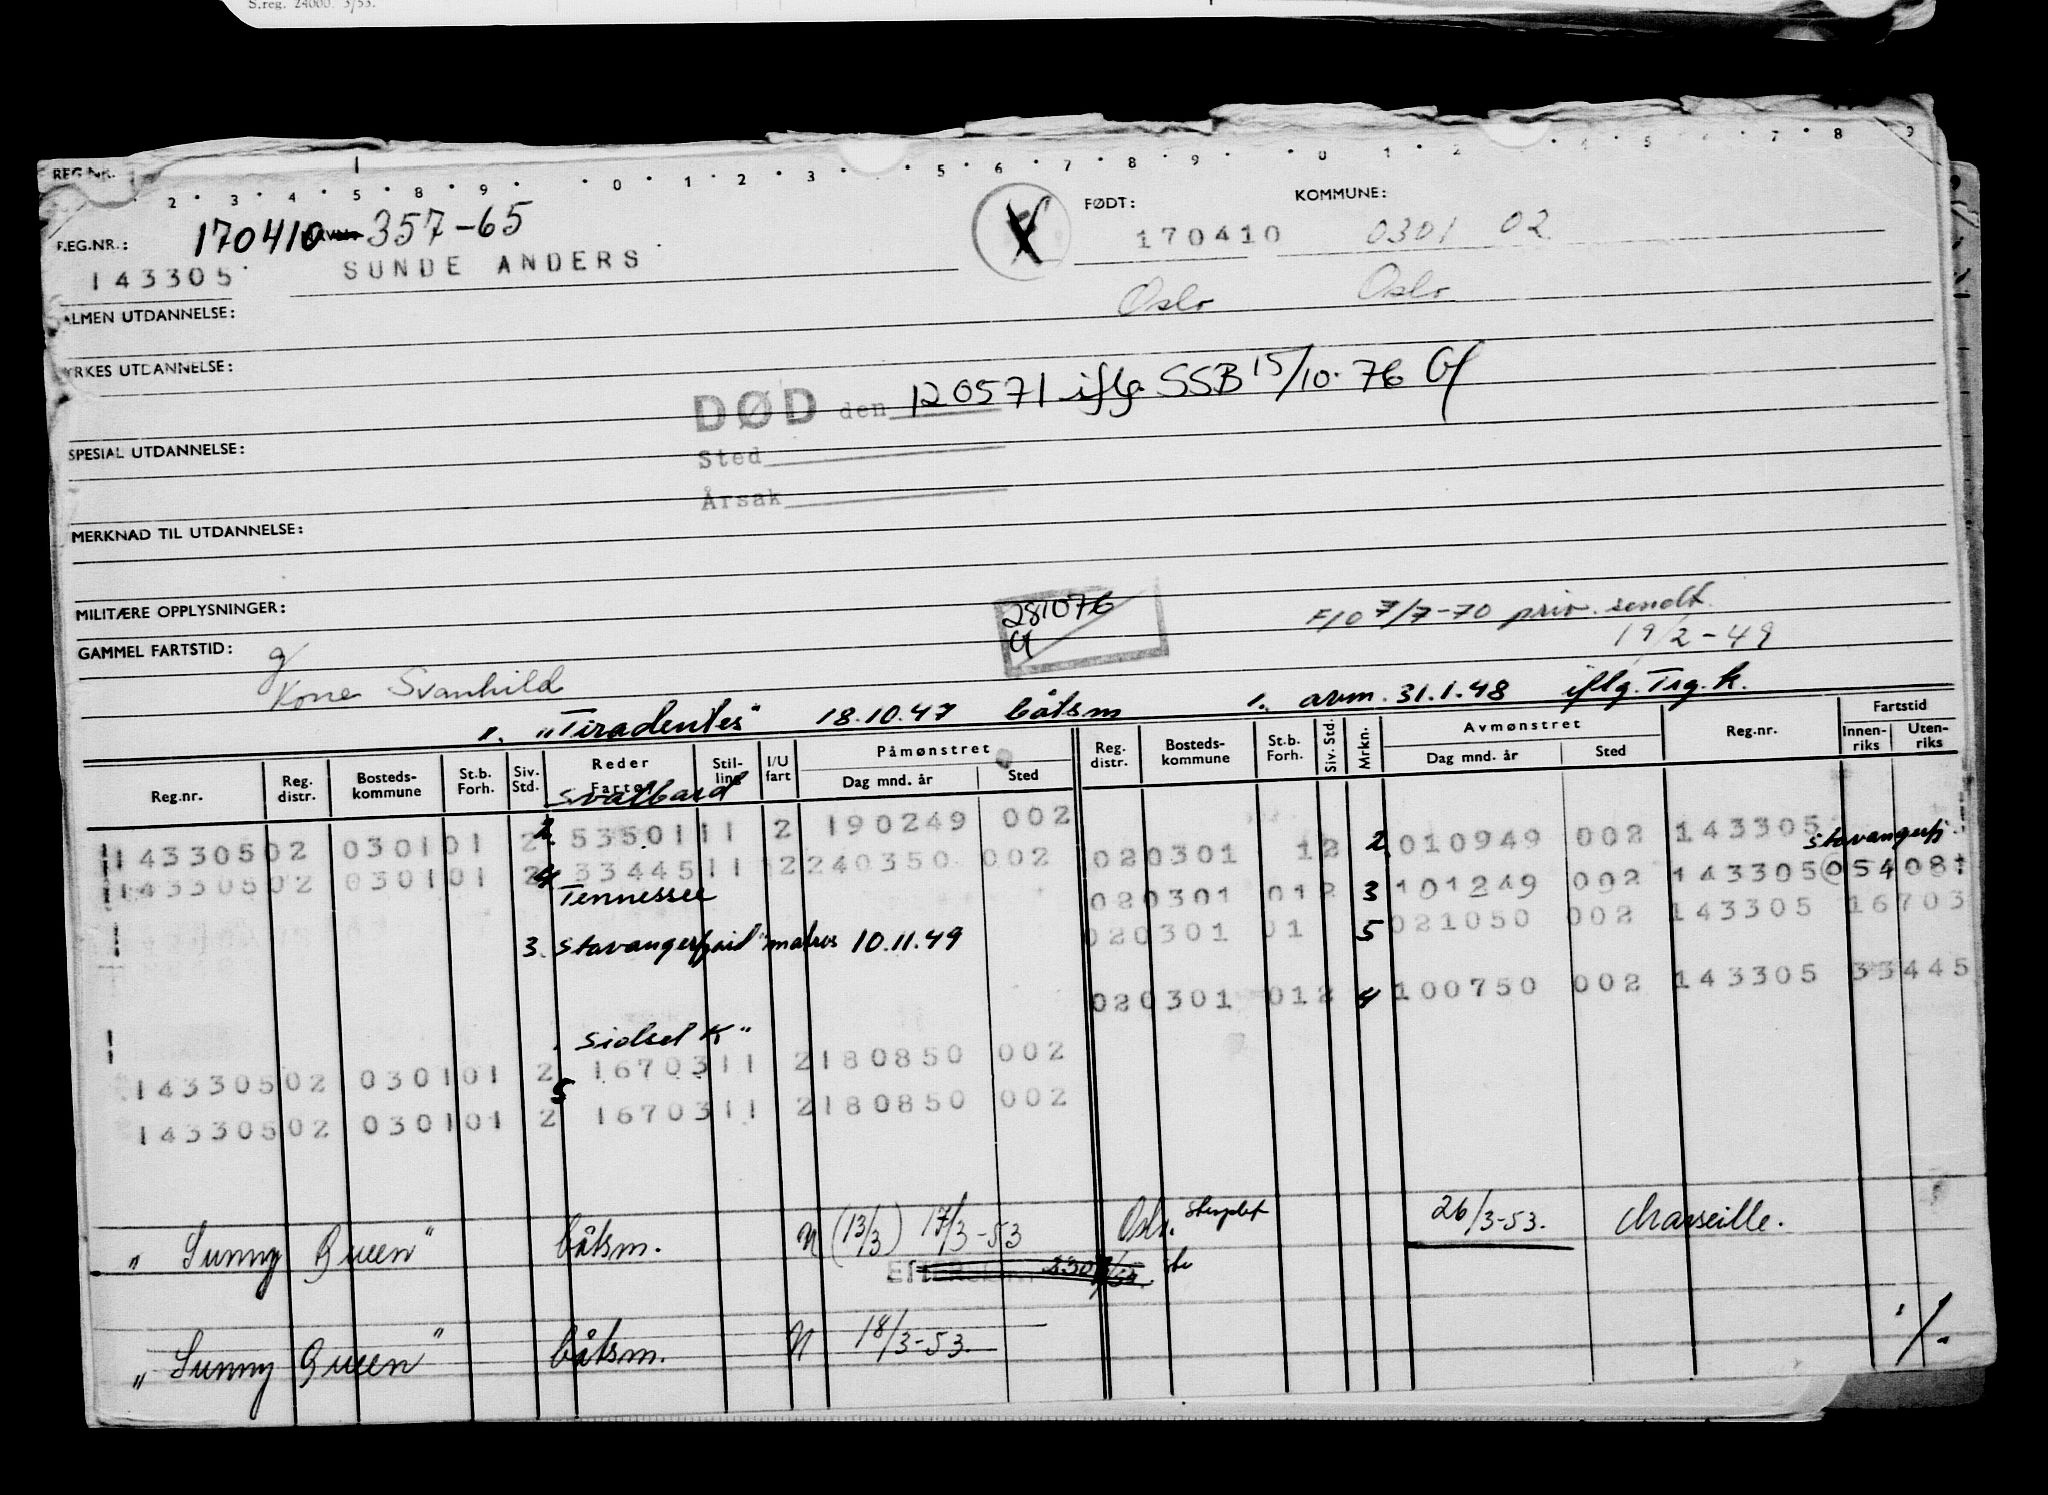 S.reg. 24000. 3/53.
REG.NR.
2 . 3 . 4 . 5 . 8 . 9 . . 0 . 1 . 2 . 3 . . 5 . 6 . 7 . 8 . 9 . . 0 . 1 . 2 . 4 . 5 . 6 . 7 . 8 . 9
REG.NR.: 170410 357-65 FØDT: KOMMUNE:
143305 SUNDE ANDERS 170410 0301 02
ALMEN UTDANNELSE: Oslo Oslo
YRKES UTDANNELSE:
DØD den 120571 iflg. SSB 15/10-76
SPESIAL UTDANNELSE:
Sted
Årsak
MERKNAD TIL UTDANNELSE:
MILITÆRE OPPLYSNINGER: 281076 F10 7/7-70 priv. sendt
GAMMEL FARTSTID: g 19/2-49
Kone Svanhild
1. "Tiradentes" 18.10.47 båtsm 1. avm. 31.1.48 iflg. Trg.k.
Reg.nr. Reg. distr. Bosteds-kommune St.b. Forh. Siv. Std. Reder Fartøy Stil-ling I/U fart Påmønstret Dag mnd. år Sted Reg. distr. Bosteds-kommune St.b. Forh. Siv. Std. Mrkn. Avmønstret Dag mnd. år Sted Reg.nr. Fartstid Innen-riks Uten-riks
Svalbard
143305 02 0301 01 2 2. 53501 11 2 190249 002 020301 12 2. 010949 002 143305 Stavangerfj.
143305 02 0301 01 2 4 33445 11 2 240350 002 020301 012 3 101249 002 143305 05408
Tennessee 020301 01 5 021050 002 143305 16703
3. Stavangerfjord" matros 10.11.49
020301 012 4 100750 002 143305 33445
Sidsel K"
143305 02 0301 01 2 16703 11 2 180850 002
5
143305 02 0301 01 2 16703 11 2 180850 002
" Sunny Queen" båtsm. N (13/3) 17/3-53 Oslo. 26/3-53. Marseille.
" Sunny Queen" båtsm. N 18/3-53. ./.